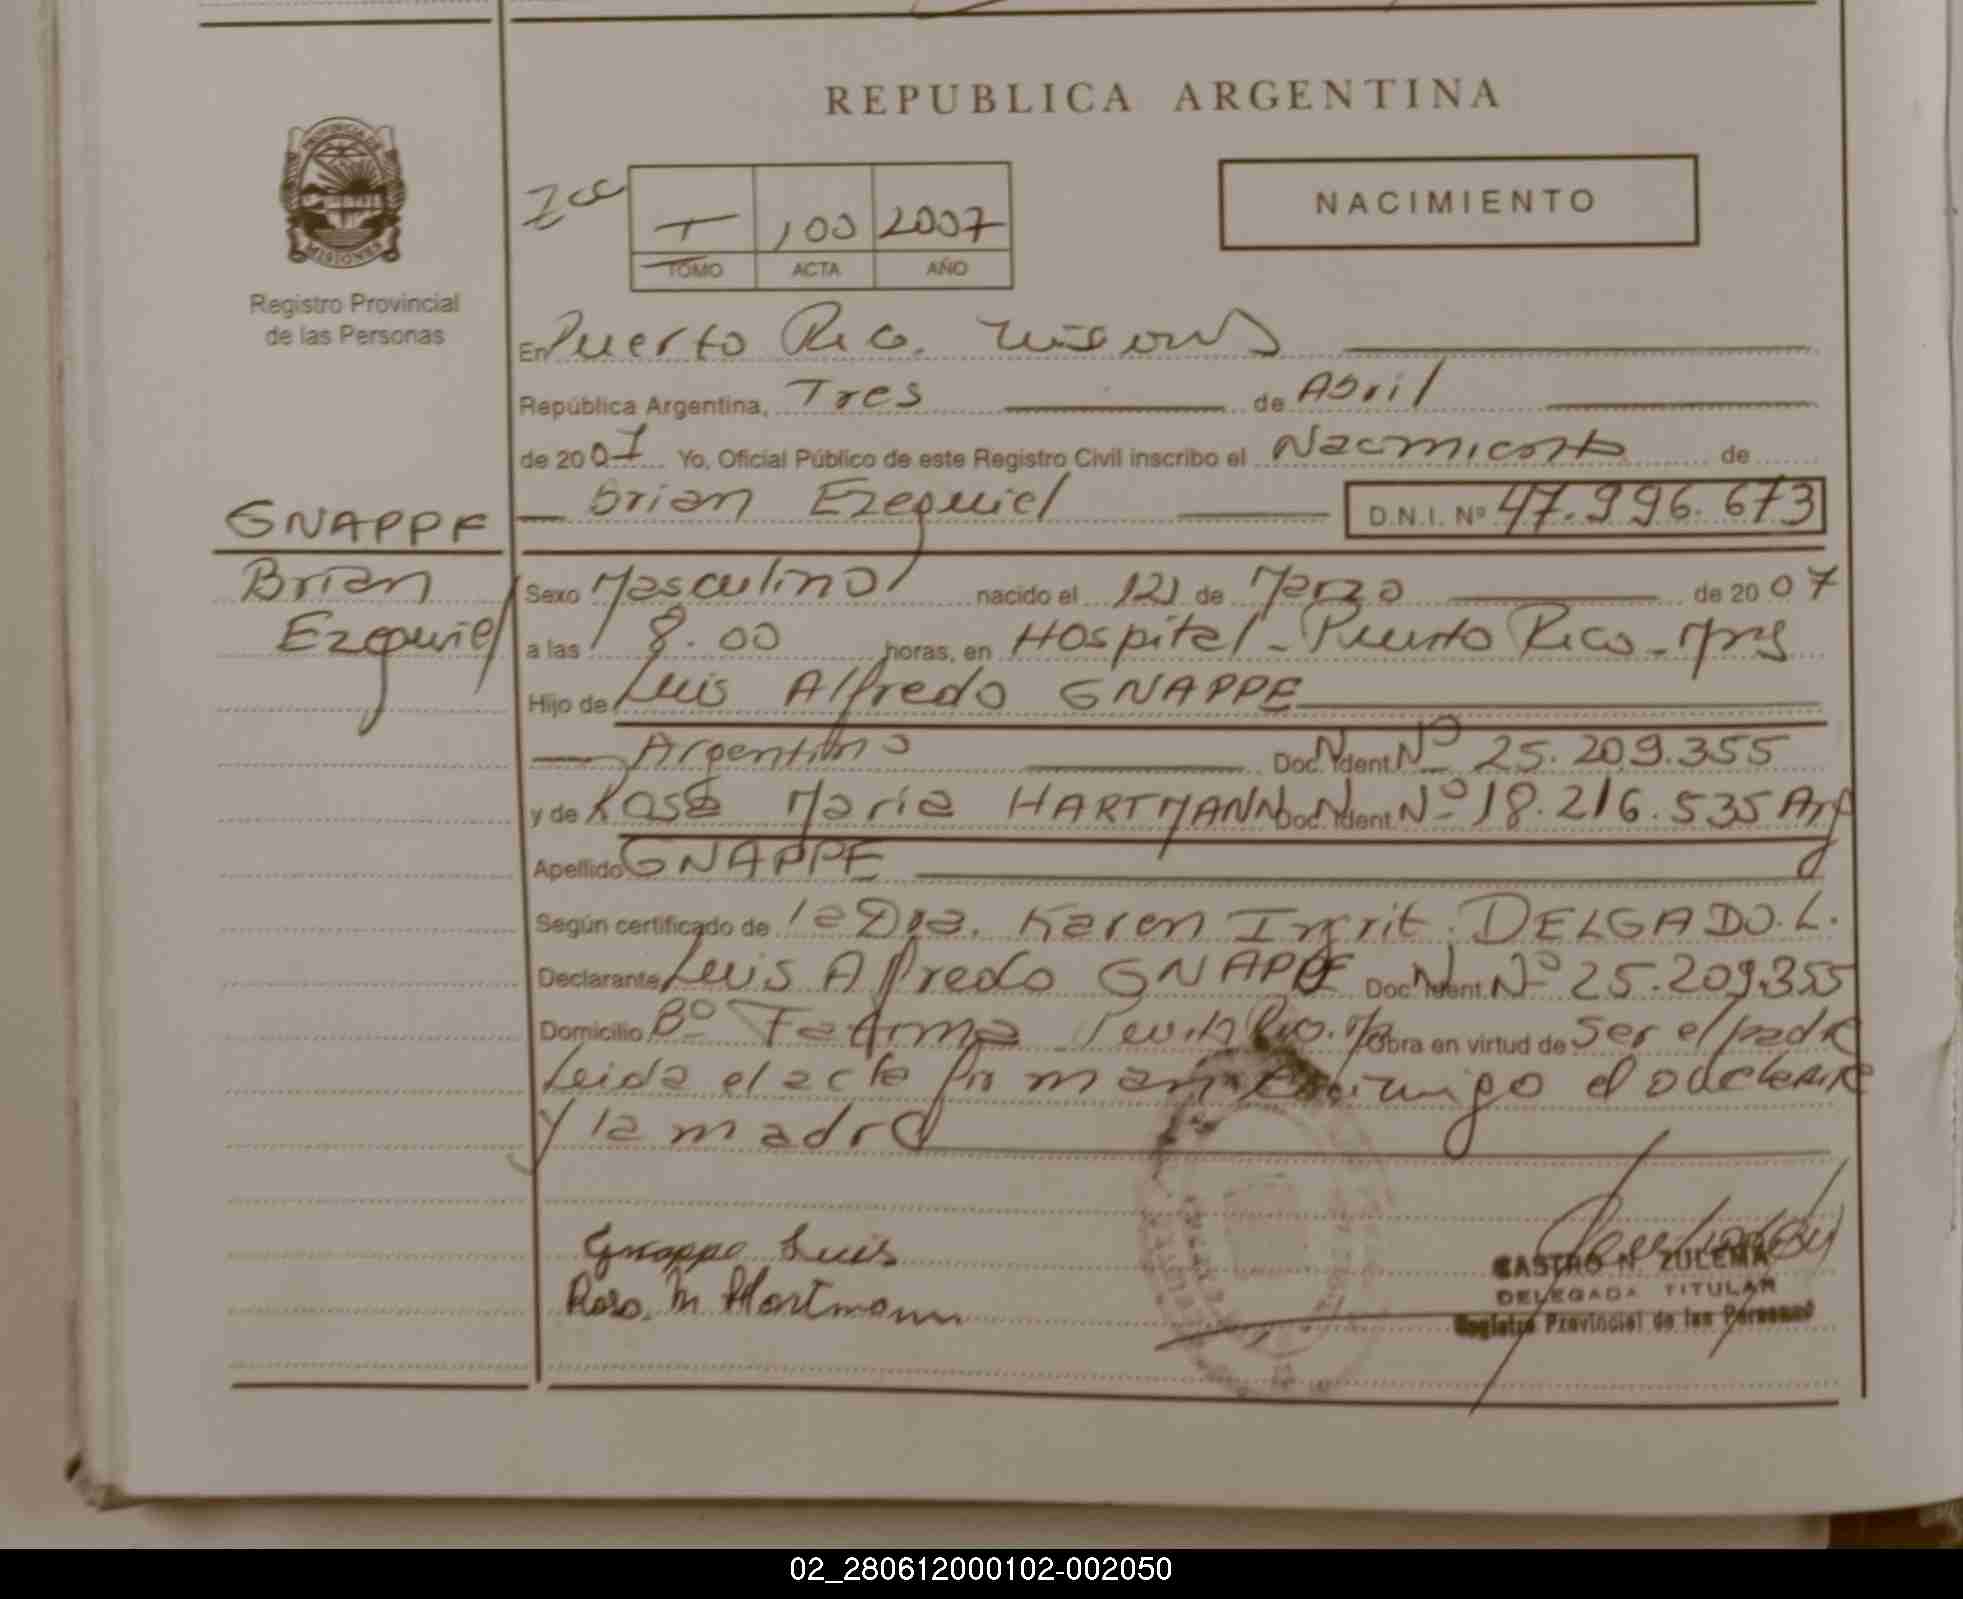 REPUBLICA ARGENTINA
PROVINCIA DE
MISIONES
Registro Provincial
de las Personas
T 100 2007
TOMO ACTA AÑO
NACIMIENTO
En Puerto Rico. Misiones
República Argentina, Tres de Abril
de 2007 Yo, Oficial Público de este Registro Civil inscribo el Nacimiento de
GNAPPE
Brian Ezequiel D.N.I. Nº 47.996.673
Brian
Ezequiel
Sexo Masculino nacido el 12 de Marzo de 2007
a las 8.00 horas, en Hospital - Puerto Rico - Mns
Hijo de Luis Alfredo GNAPPE
Argentino Doc. Ident. Nº 25.209.355
y de Rosa Maria HARTMANN Doc. Ident. Nº 18.216.535 Arg
Apellido GNAPPE
Según certificado de la Dra. Karen Ingrit. DELGADO. L.
Declarante Luis Alfredo GNAPPE Doc. Ident. Nº 25.209.355
Domicilio Bº Fatima Obra en virtud de ser el padre
Leida el acta conmigo el
y la madre
Gnappe Luis
Rosa. M. Hartmann
CASTRO N. ZULEMA
DELEGADA TITULAR
Registro Provincial de las Personas
02_280612000102-002050